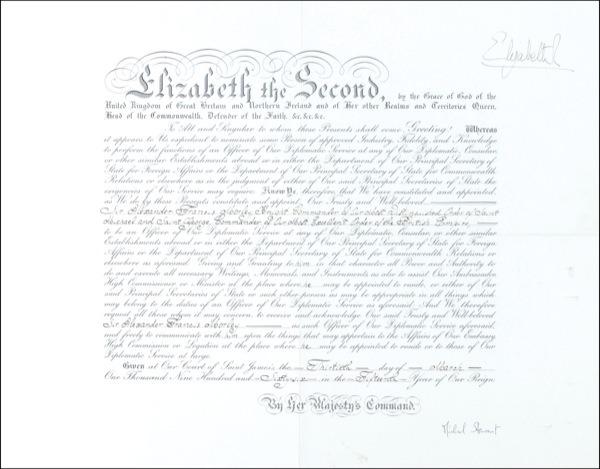 Elizabeth R
Elizabeth the Second,
by the Grace of God of the
United Kingdom of Great Britain and Northern Ireland and of Her other Realms and Territories Queen,
Head of the Commonwealth, Defender of the Faith, &c, &c, &c.
To All and Singular to whom these Presents shall come, Greeting! Whereas
it appears to Us expedient to nominate some Person of approved Industry, Fidelity, and Knowledge
to perform the functions of an Officer of Our Diplomatic Service at any of Our Diplomatic, Consular
or other similar Establishments abroad or in either the Department of Our Principal Secretary of
State for Foreign Affairs or the Department of Our Principal Secretary of State for Commonwealth
Relations or elsewhere as in the judgment of either of Our said Principal Secretaries of State the
exigencies of Our Service may require: Know Ye, therefore, that We have constituted and appointed,
as We do by these Presents constitute and appoint, Our Trusty and Well-beloved
Sir Alexander Francis Knight Commander of Our Most Distinguished Order of Saint
Michael and Saint George, Commander of Our Most Excellent Order of the British Empire,
to be an Officer of Our Diplomatic Service at any of Our Diplomatic, Consular or other similar
Establishments abroad or in either the Department of Our Principal Secretary of State for Foreign
Affairs or the Department of Our Principal Secretary of State for Commonwealth Relations or
elsewhere as aforesaid. Giving and Granting to him in that character all Power and Authority to
do and execute all necessary Writings, Memorials and Instruments as also to assist Our Ambassador
High Commissioner or Minister at the place where he may be appointed to reside, or either of Our
said Principal Secretaries of State or such other person as may be appropriate in all things which
may belong to the duties of an Officer of Our Diplomatic Service as aforesaid. And We therefore
request all those whom it may concern, to receive and acknowledge Our said Trusty and Well-beloved
Sir Alexander Francis as such Officer of Our Diplomatic Service aforesaid,
and freely to communicate with him upon the things that may appertain to the Affairs of Our Embassy
High Commission or Legation at the place where he may be appointed to reside or to those of Our
Diplomatic Service at large.
Given at Our Court of Saint James's, the Thirtieth day of March
One Thousand Nine Hundred and in the Fifteenth Year of Our Reign.
By Her Majesty's Command.
Michael Stewart